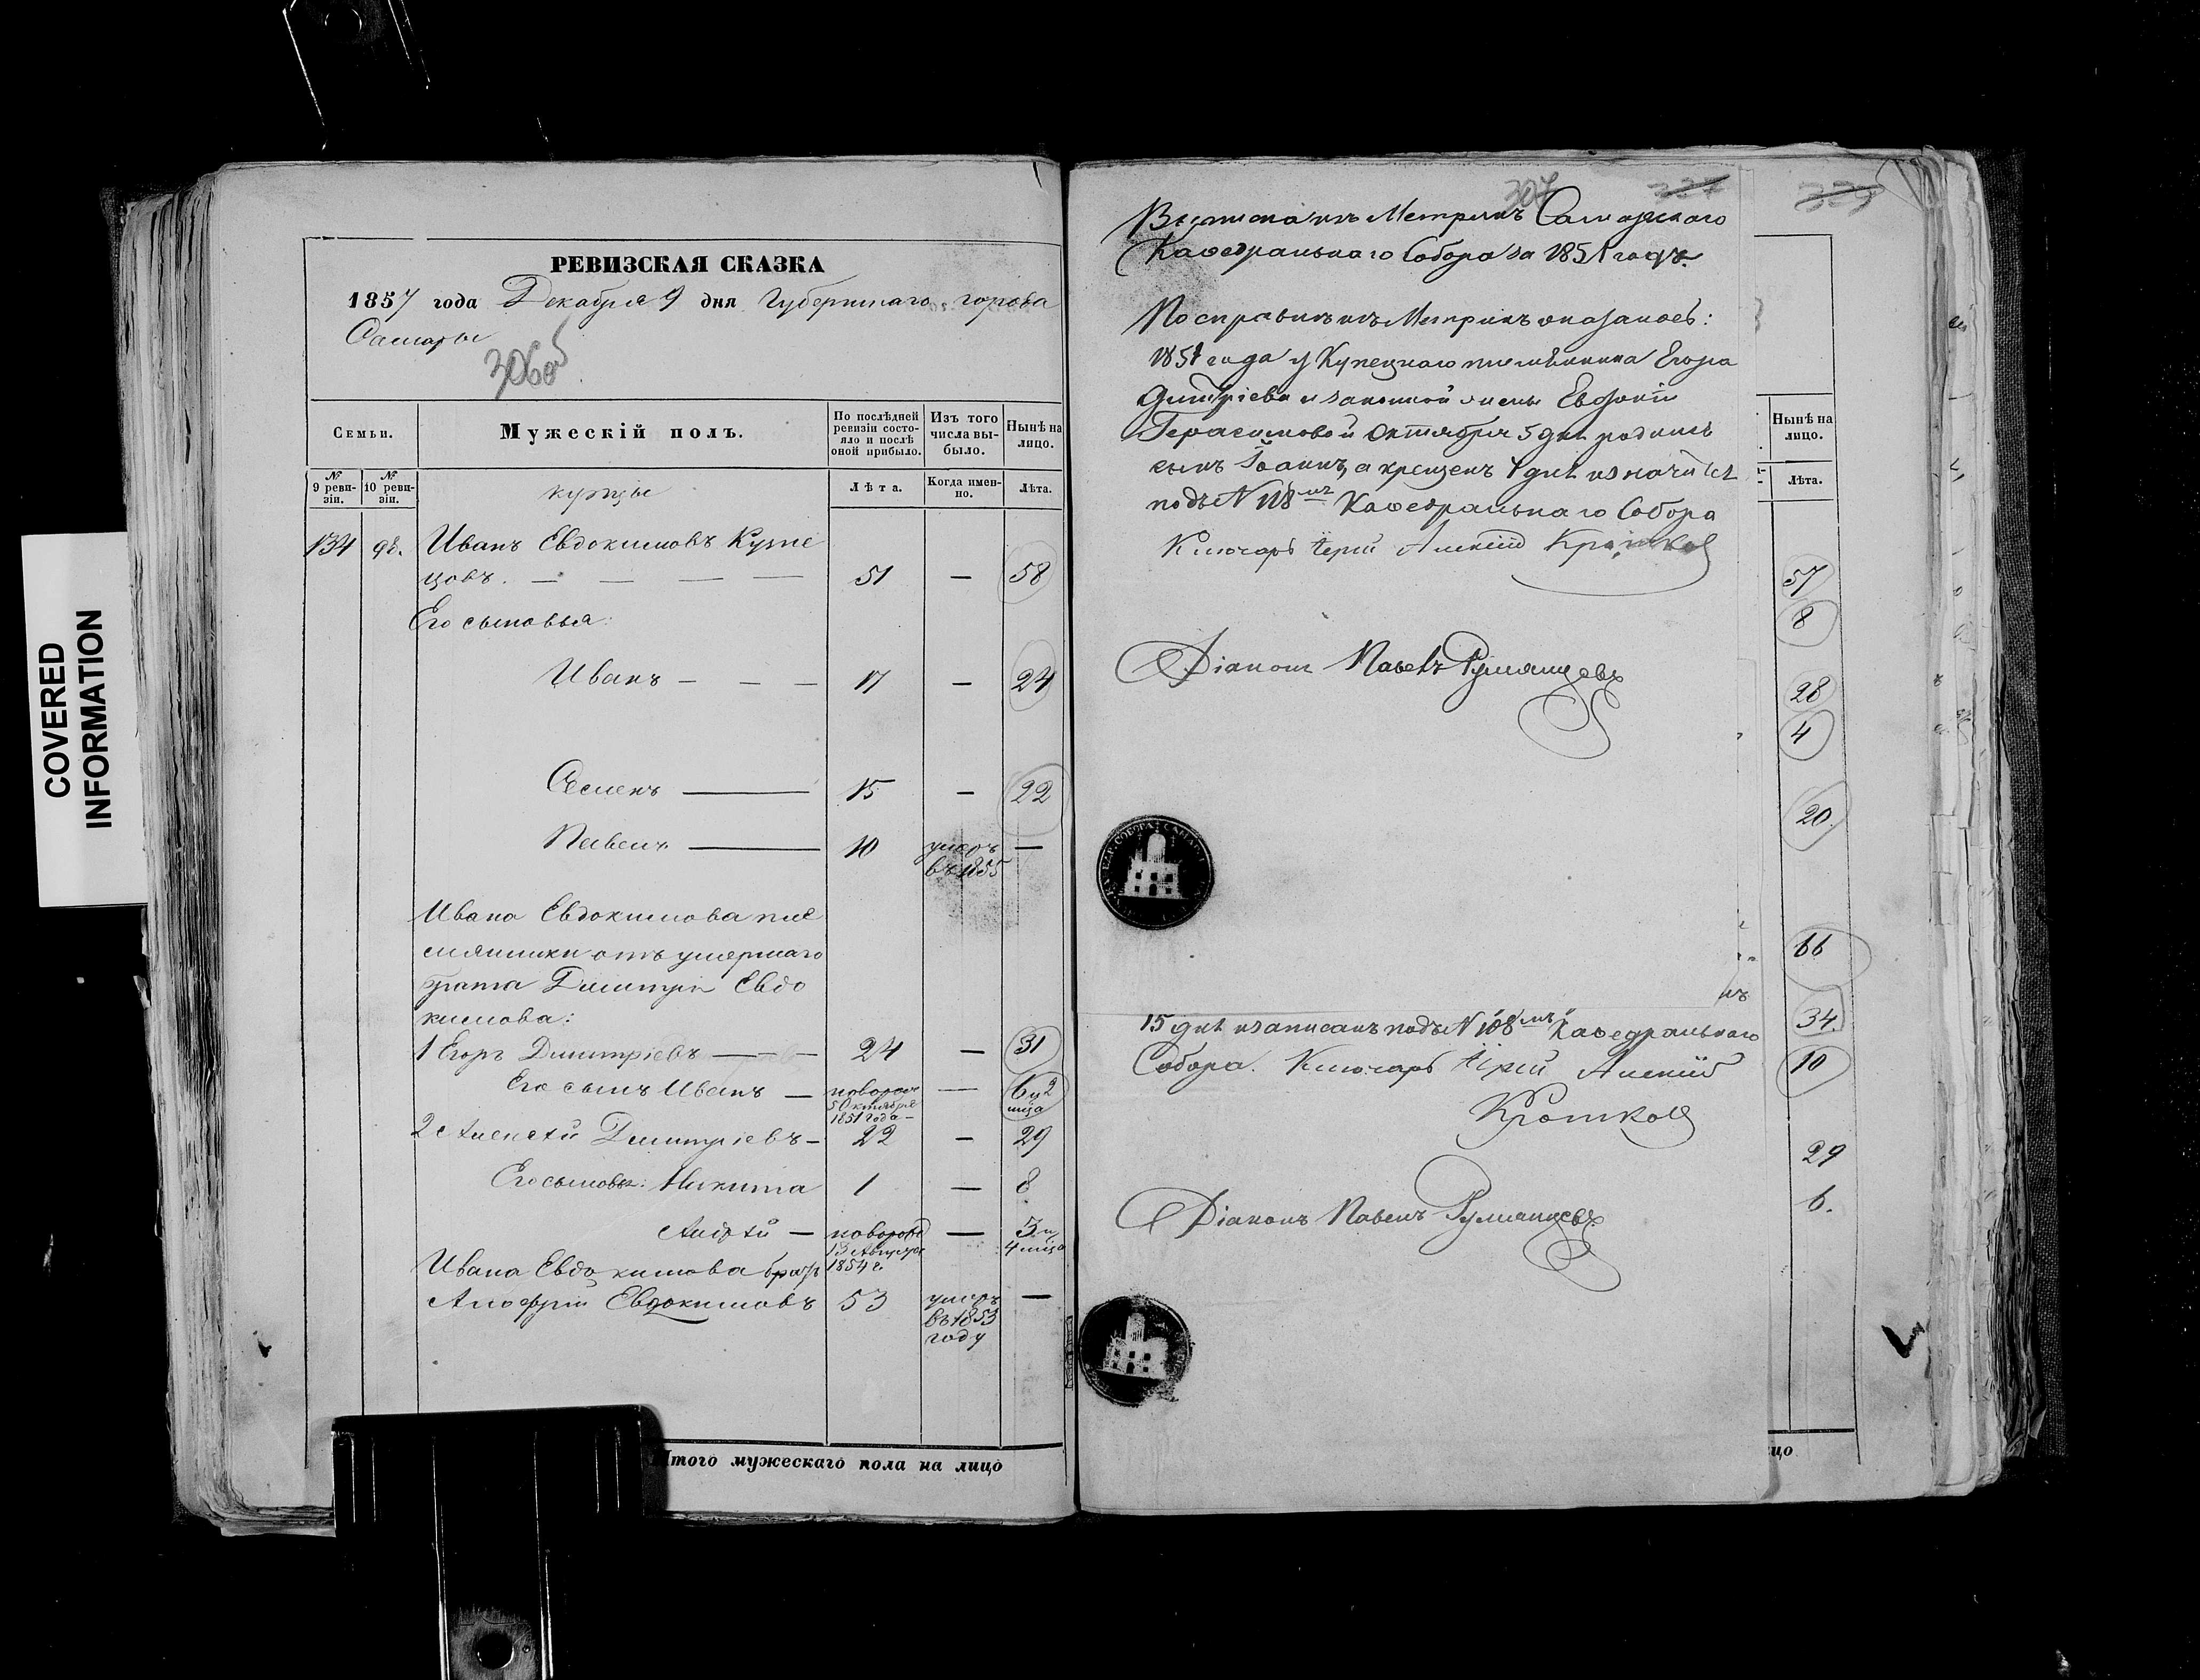 COVERED
INFORMATION
РЕВИЗСКАЯ СКАЗКА
1857 года Декабря 9 дня Губернскаго города
Самары
306об
Семьи.
Мужескій полъ.
По послѣдней ревизіи состояло и послѣ оной прибыло.
Изъ того числа выбыло.
Нынѣ на лицо.
№ 9 ревизіи.
№ 10 ревизіи.
купцы
Лѣта.
Когда именно.
Лѣта.
134 Иванъ Евдокимовъ Кузне
цовъ. — — — — 51 — 58
Его сыновья:
Иванъ — — — 17 — 24
Семенъ — 15 — 22
Павелъ — 10 умеръ въ 1855 —
Ивана Евдокимова пле
мянники отъ умершаго
брата Димитрія Евдо
кимова:
1 Егоръ Димитріевъ — 24 — 31
Его сынъ Иванъ — новорож 5 Октября 1851 года — 6 и 2 мца
2 Алексѣй Димитріевъ — 22 — 29
Его сыновья: Никита 1 — 8
Андрѣй — новорожд 13 Августа 1854 г. — 3 и 4 мца
Ивана Евдокимова братъ
Евдокимовъ 53 умеръ въ 1853 году —
Итого мужескаго пола на лицо
307
Выписка изъ Метрикъ Самарскаго
Каѳедральнаго Собора за 1851 годъ.
По справкѣ изъ Метрикъ оказалось:
1851 года у Купецкаго племянника Егора
Димитріева и законной жены Евдокіи
Герасимовой Октября 5 дня родился
сынъ Іоаннъ, а крещенъ 7 дня
подъ № 118мъ Каѳедральнаго Собора
Ключарь Іерей Алексій Кротковъ
Діаконъ Павелъ Румянцевъ
15 дня и записанъ подъ № 108мъ Каѳедральнаго
Собора. Ключарь Іерей Алексій
Кротковъ
Діаконъ Павелъ Румянцевъ
Нынѣ на лицо.
Лѣта.
57
8
28
4
20
66
34
10
29
6.
цо